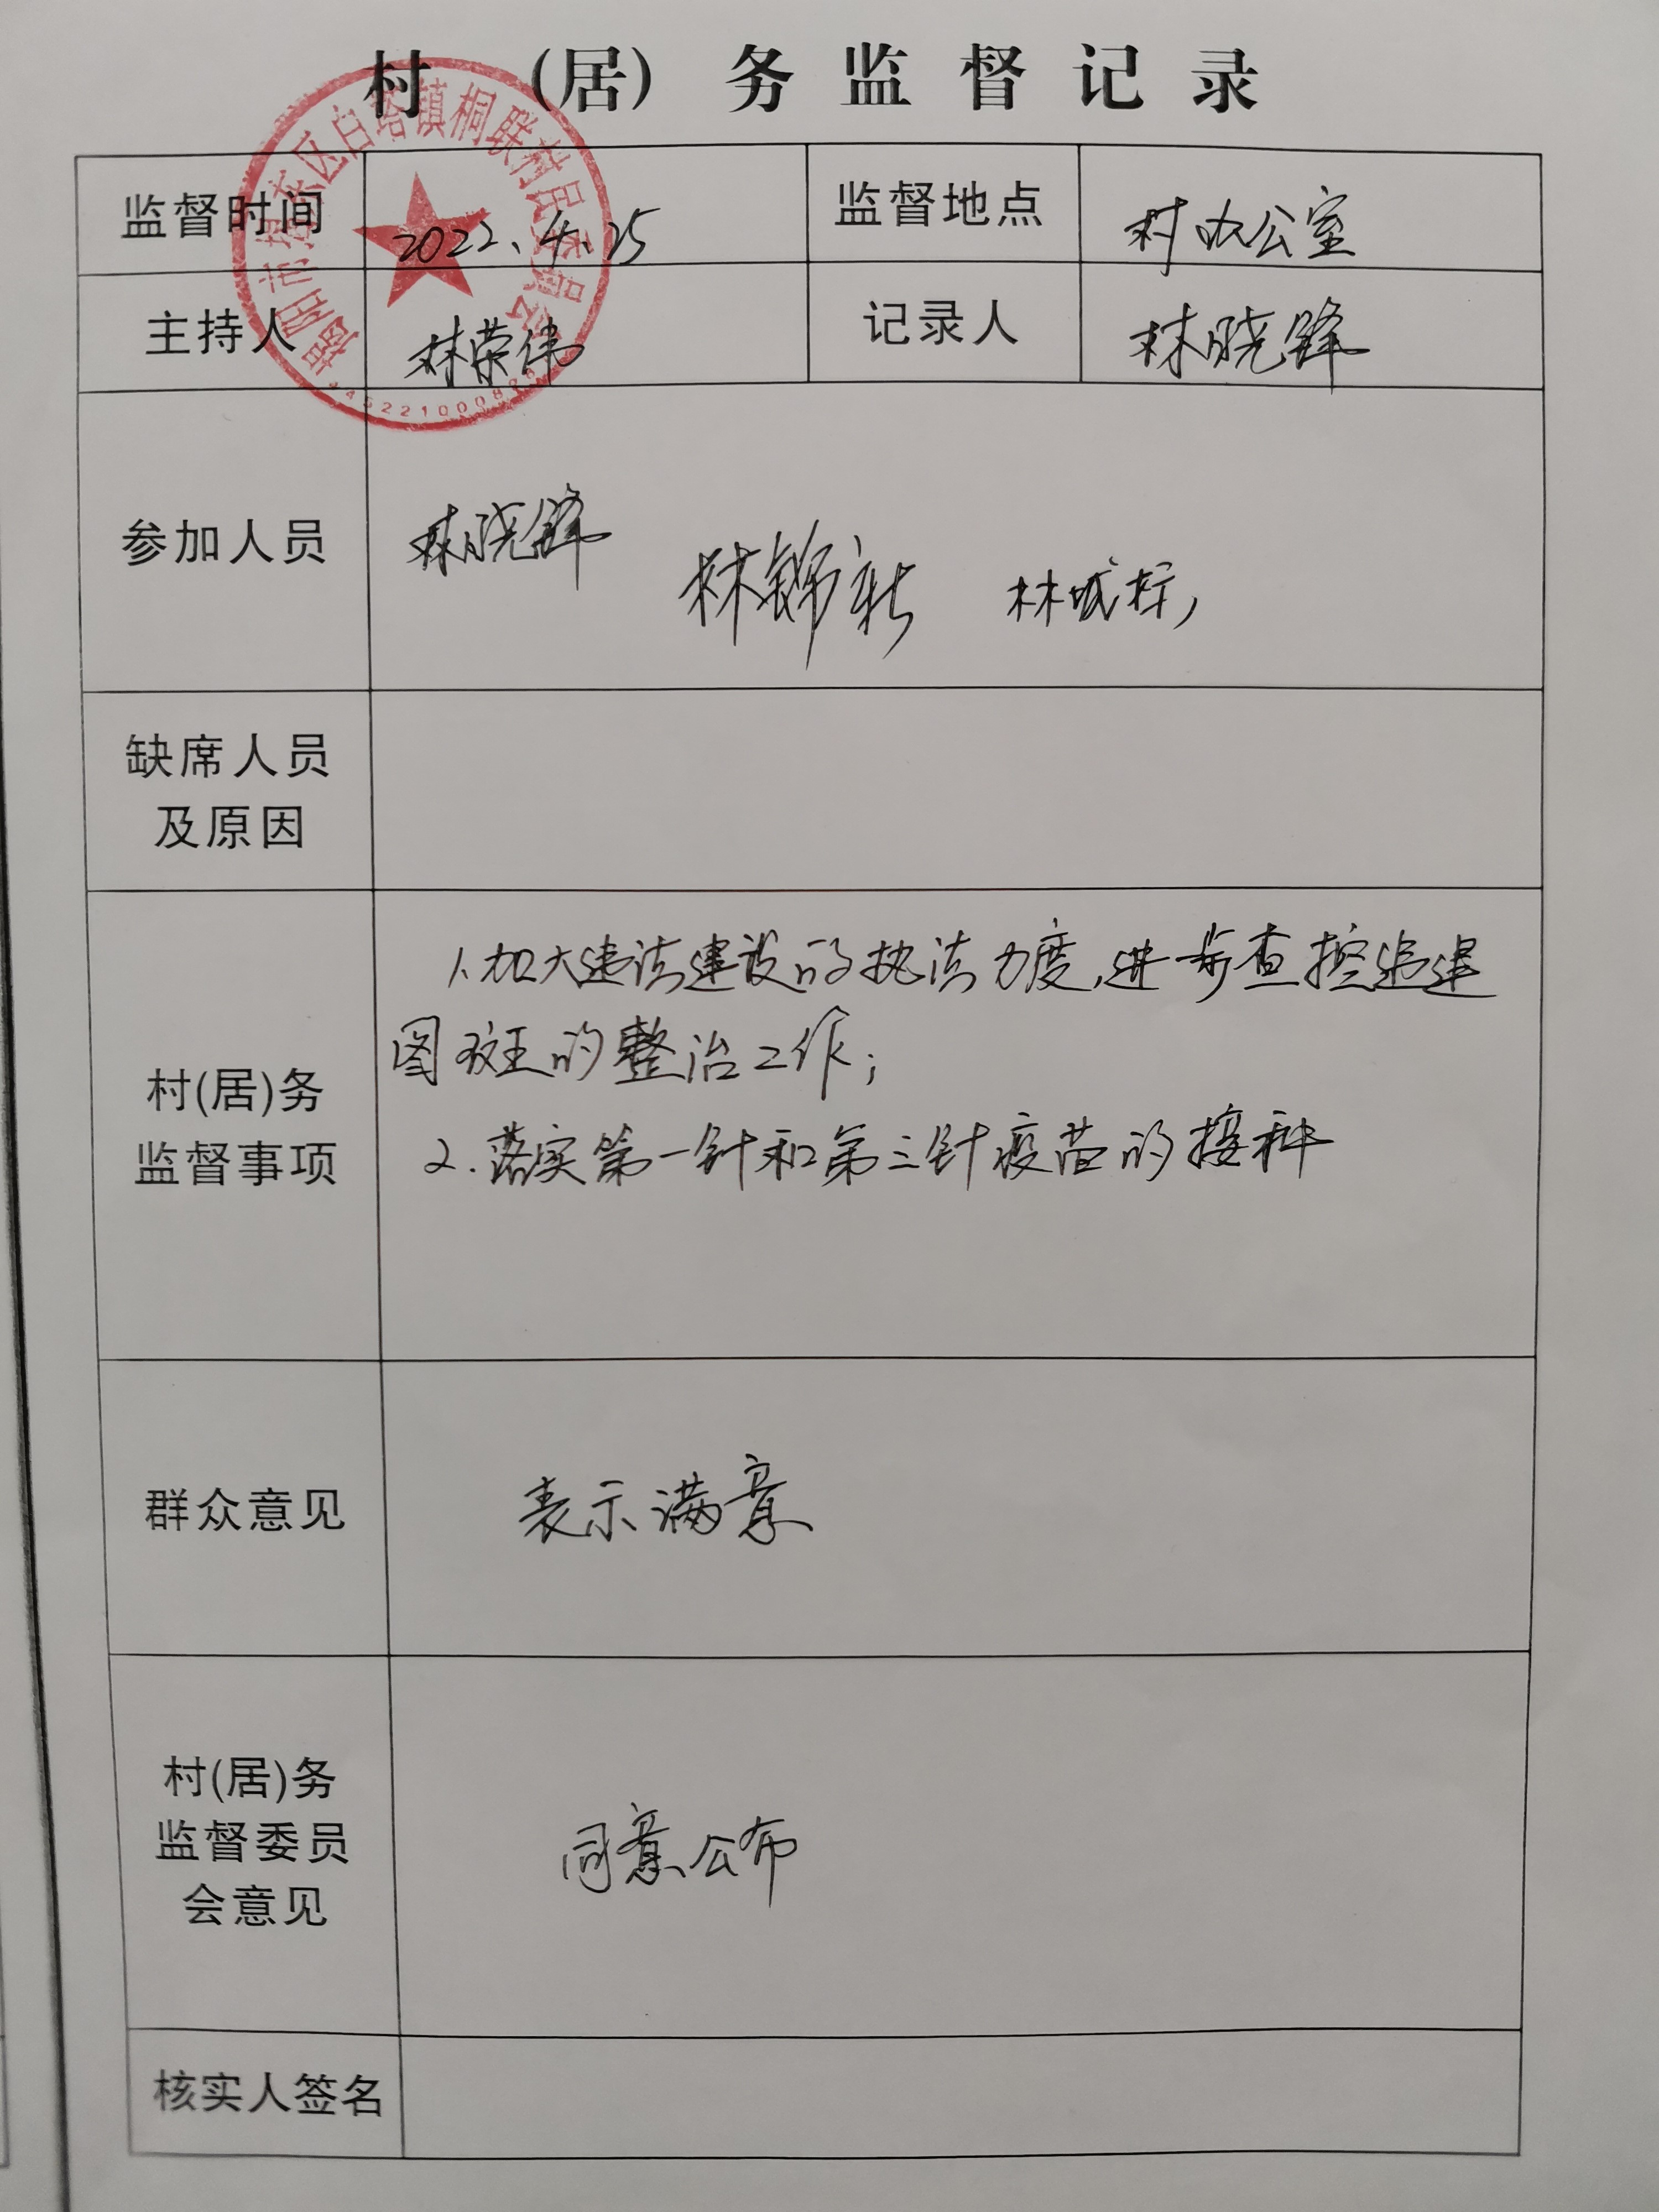 村（居）务监督记录
揭阳市揭东区白塔镇桐联村民委员会
监督时间
2022.4.25
监督地点
村办公室
主持人
林荣伟
记录人
林晓锋
参加人员
林晓锋
林锦新
林成标
缺席人员
及原因
村(居)务
监督事项
1、加大违法建设的执法力度,进一步查控违建
图斑的整治工作;
2.落实第一针和第三针疫苗的接种
群众意见
表示满意
村(居)务
监督委员
会意见
同意公布
核实人签名